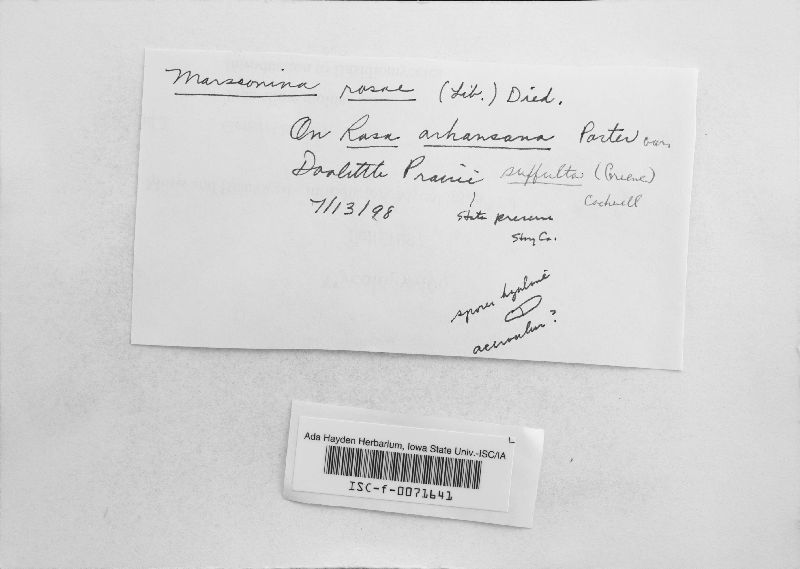 Marssonina rosae (Lib.) Died.
On Rosa arkansana Porter var.
Doolittle Prairie suffulta (Greene)
Cockerell
7/13/98
State preserve
Story Co.
spores hyaline
acervulus?
Ada Hayden Herbarium, Iowa State Univ.-ISC/IA
ISC-f-0071641